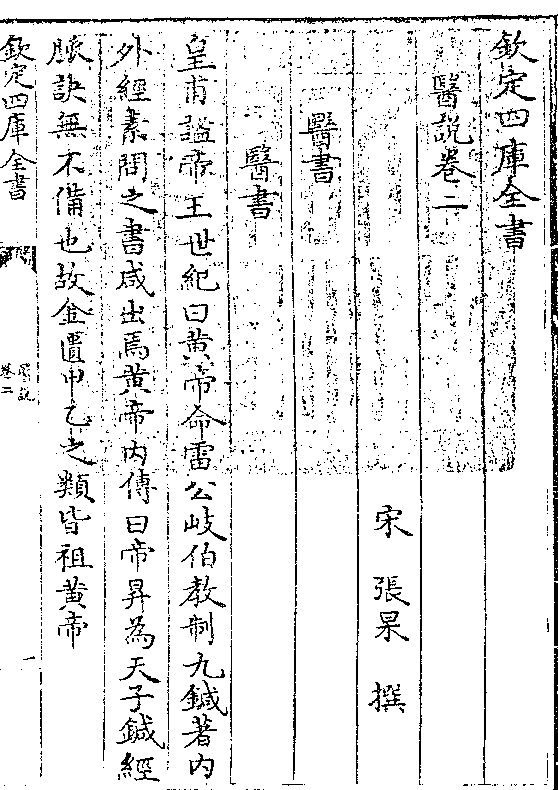 欽定四庫全書
醫説卷二
宋 張杲 撰
醫書
醫書
皇甫謐帝王世紀曰黄帝命雷公岐伯教制九鍼著内
外經素問之書咸出焉黄帝内傳曰帝昇為天子鍼經
脉訣無不備也故金匱甲乙之類皆祖黄帝
欽定四庫全書
醫説
卷二
一